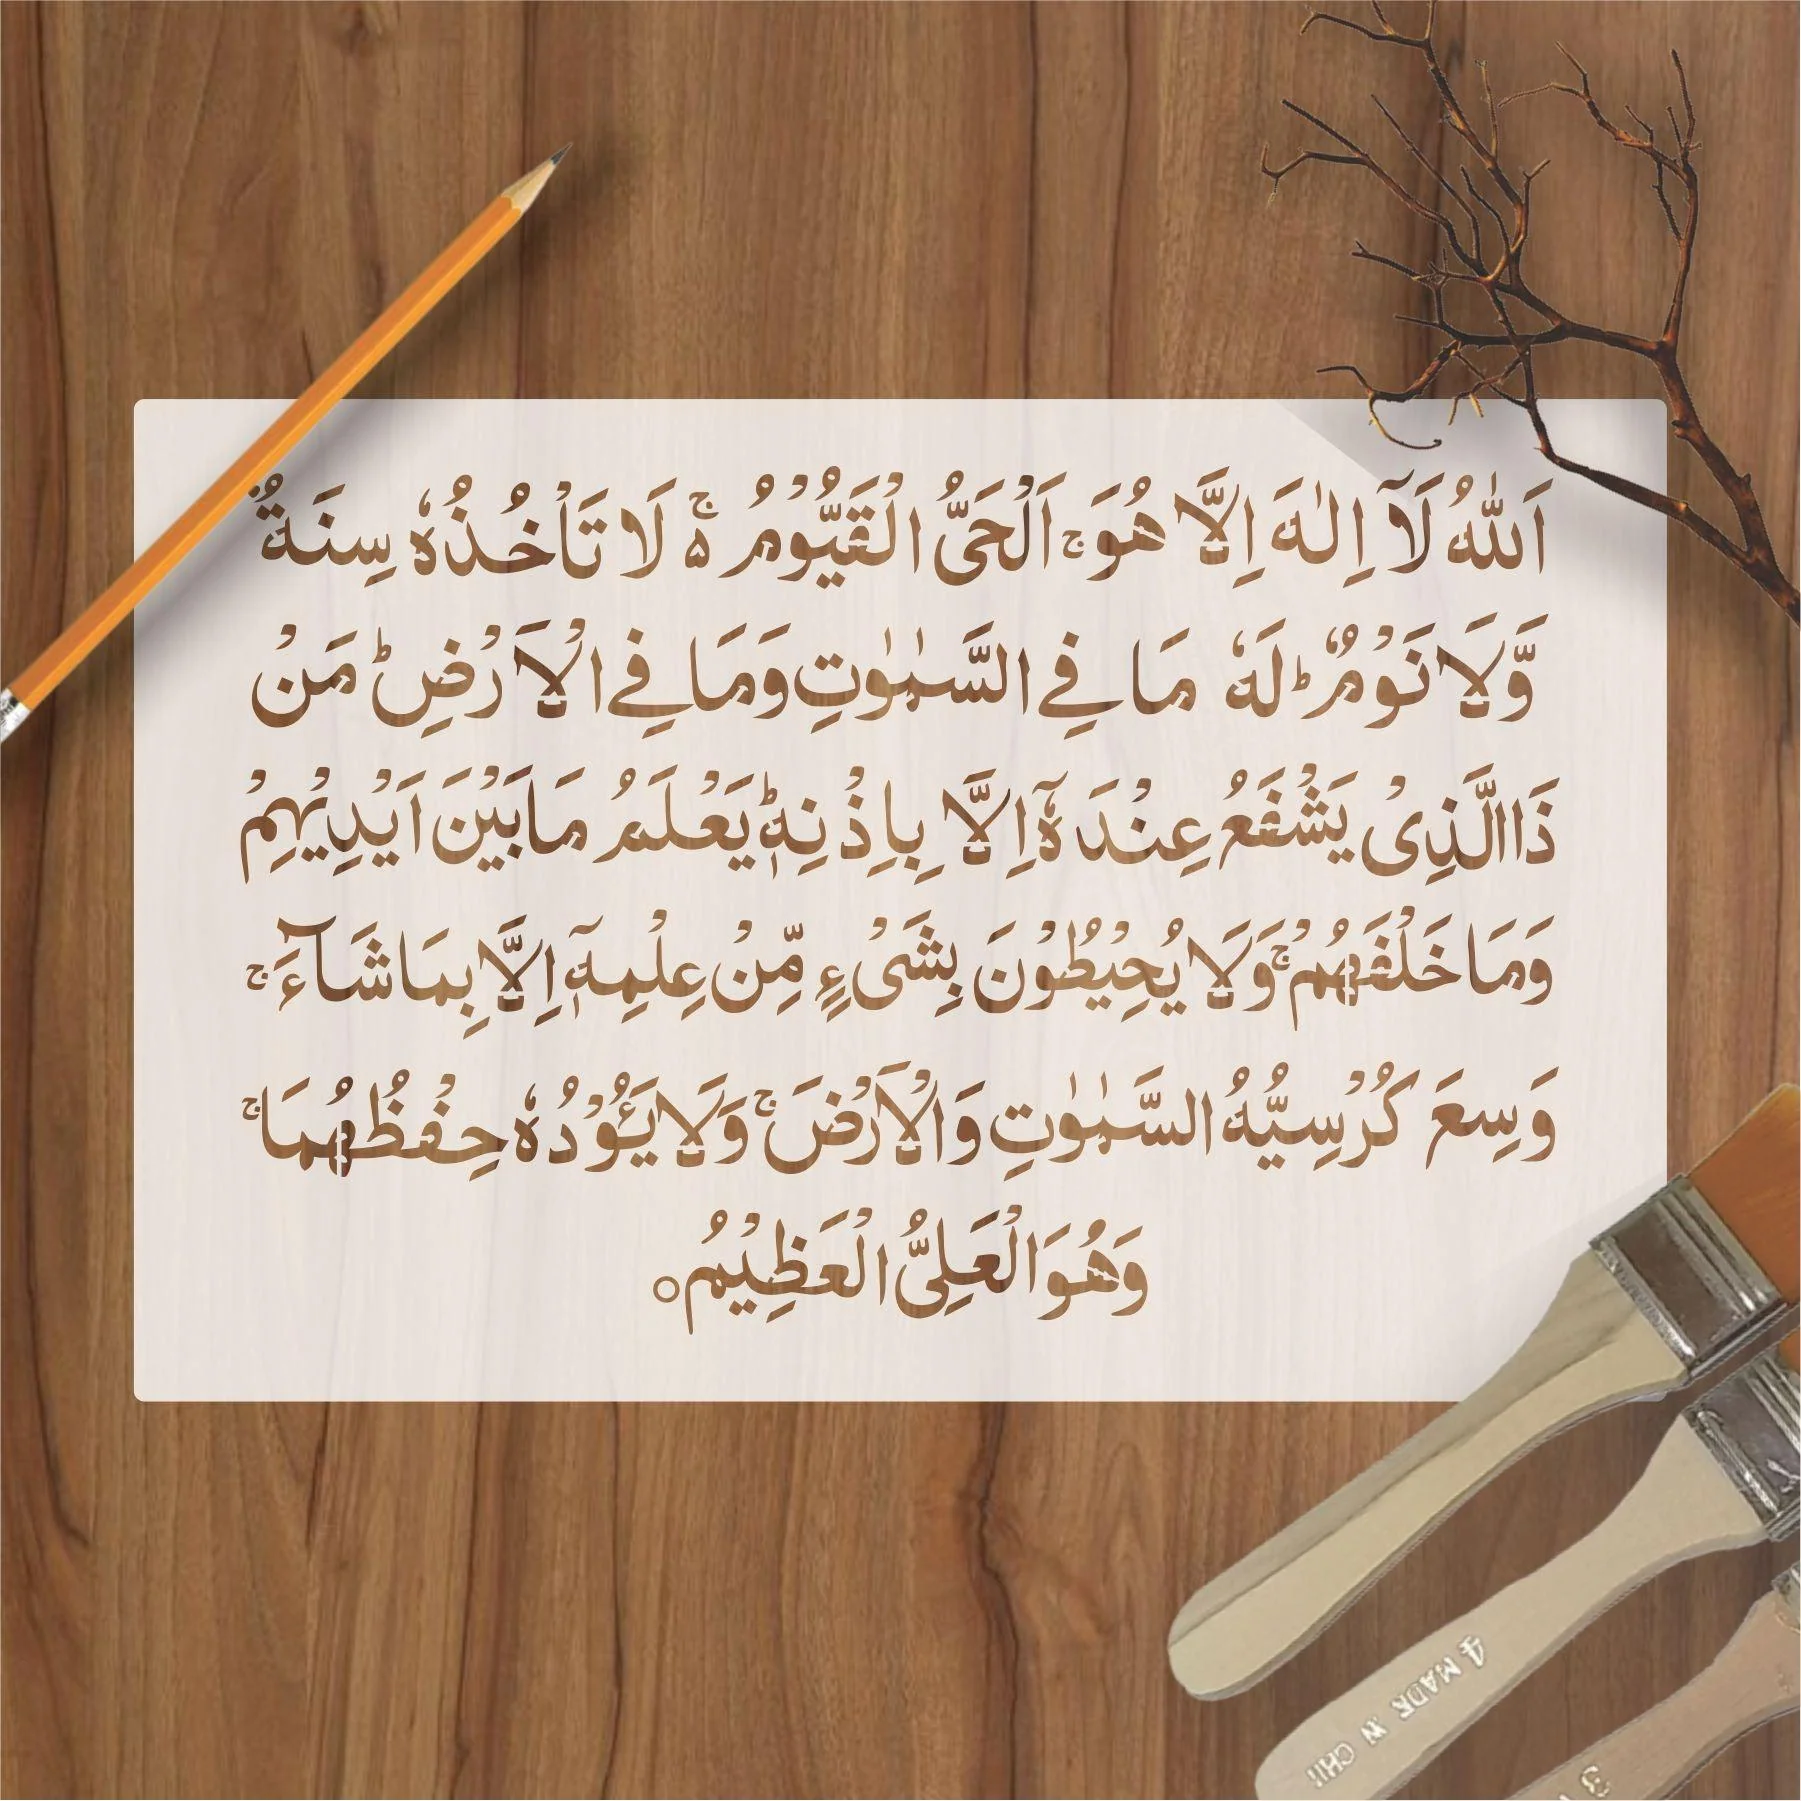 اَللّٰهُ لَآ اِلٰهَ اِلَّا هُوَ ۚ اَلْحَیُّ الْقَیُّوْمُ ۬ۚ لَا تَاْخُذُهٗ سِنَةٌ
وَّلَا نَوْمٌ ؕ لَهٗ مَا فِے السَّمٰوٰتِ وَمَا فِے الْاَرْضِ ؕ مَنْ
ذَا الَّذِیْ یَشْفَعُ عِنْدَهٗۤ اِلَّا بِاِذْنِهٖ ؕ یَعْلَمُ مَا بَیْنَ اَیْدِیْهِمْ
وَمَا خَلْفَهُمْ ۚ وَلَا یُحِیْطُوْنَ بِشَیْءٍ مِّنْ عِلْمِهٖۤ اِلَّا بِمَا شَآءَ ۚ
وَسِعَ كُرْسِیُّهُ السَّمٰوٰتِ وَالْاَرْضَ ۚ وَلَا یَـُٔوْدُهٗ حِفْظُهُمَا ۚ
وَهُوَ الْعَلِیُّ الْعَظِیْمُ ○
4 MADE IN CHI
3